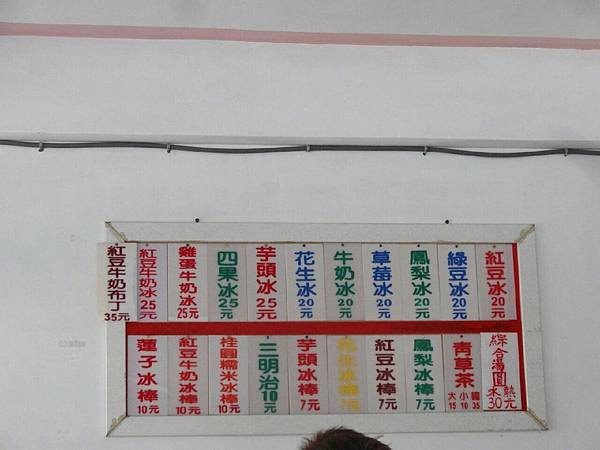 紅豆冰 20元
綠豆冰 20元
鳳梨冰 20元
草莓冰 20元
牛奶冰 20元
花生冰 20元
芋頭冰 25元
四果冰 25元
雞蛋牛奶冰 25元
紅豆牛奶冰 25元
紅豆牛奶布丁 35元
綜合湯圓 冰 熱 30元
青草茶 大15 小10 罐35
鳳梨冰棒 7元
紅豆冰棒 7元
花生冰棒 7元
芋頭冰棒 7元
三明治 10元
桂圓糯米冰棒 10元
紅豆牛奶冰棒 10元
蓮子冰棒 10元